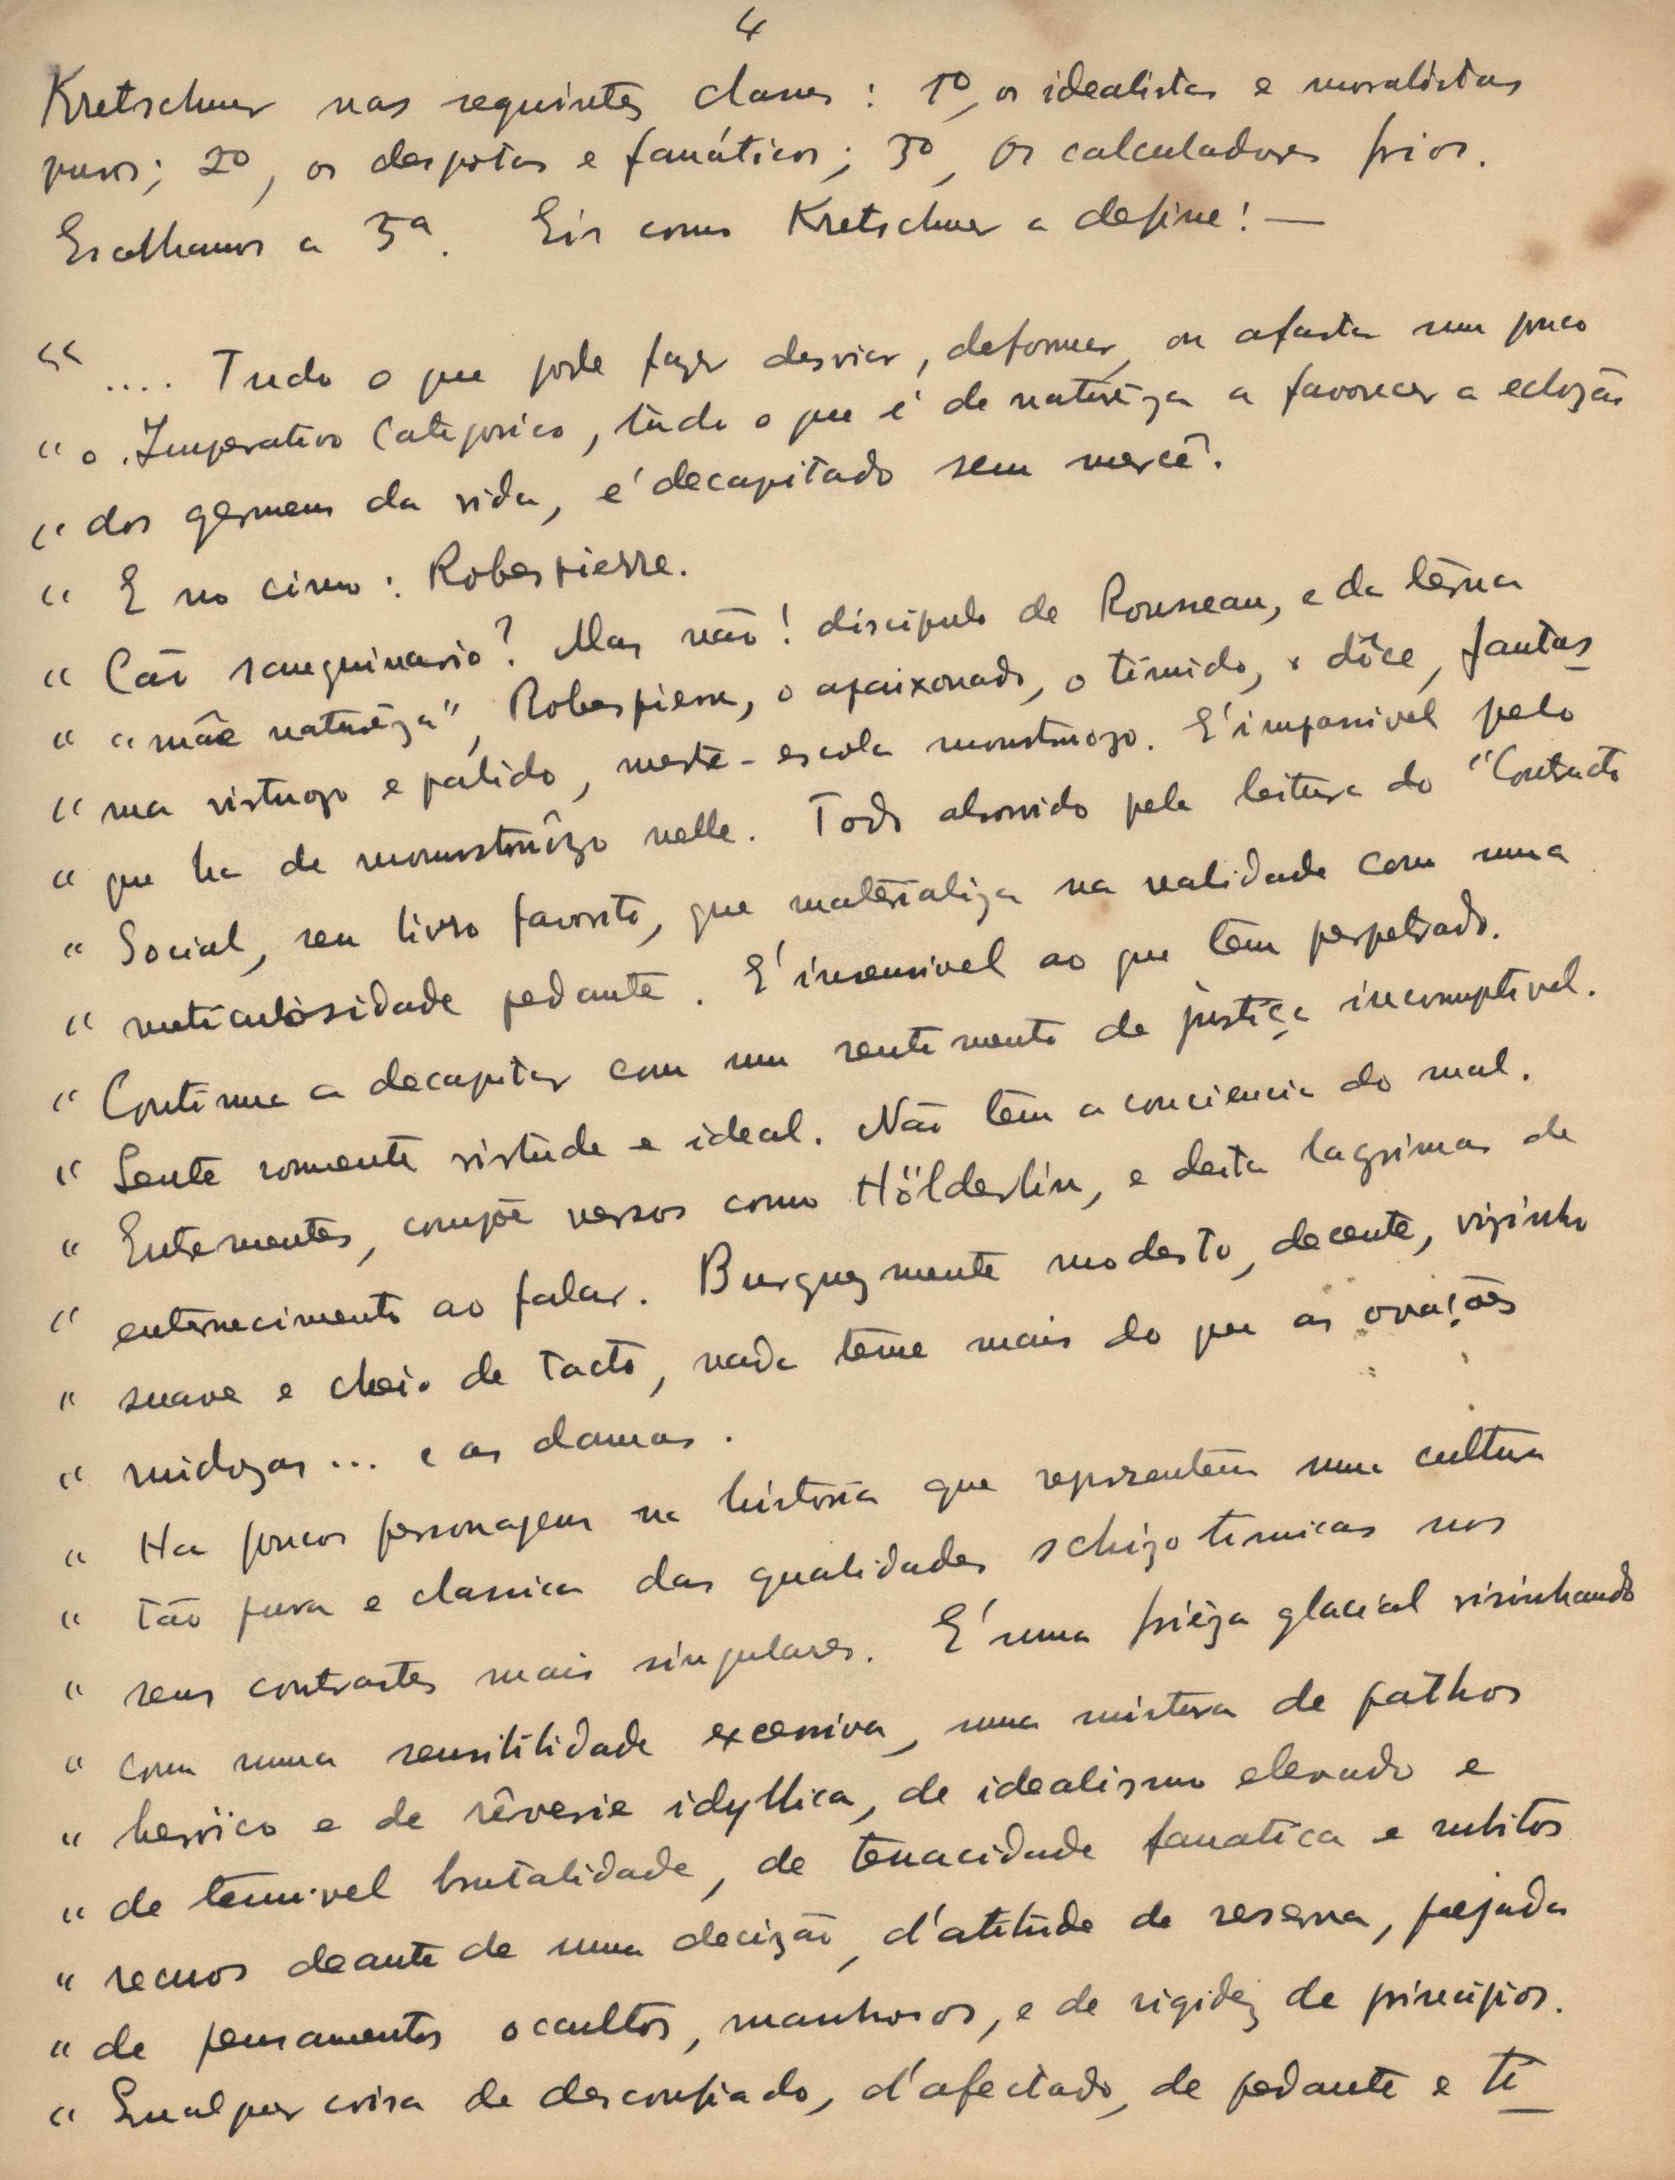 4
Kretschmer nas seguintes classes : 1º, os idealistas e moralistas
puros; 2º, os despotas e fanáticos; 3º, os calculadores frios.
Escolhamos a 3ª. Eis como Kretschmer a define! —
“ .... Tudo o que pode fazer desviar, deformar, ou afastar um pouco
“ o Imperativo Categorico, tudo o que é de naturêza a favorecer a eclozão
“ dos germens da vida, é decapitado sem mercê.
“ E no cimo : Robespierre.
“ Cão sanguinario? Mas não! discipulo de Rousseau, e da terna
“ “mãe naturêza”, Robespierre, o apaixonado, o timido, o dôce, fantas
“ ma virtuozo e pálido, mestre-escola monstruozo. E' impassivel pelo
“ que ha de monstruôzo nelle. Todo absorvido pela leitura do “Contracto
“ Social, seu livro favorito, que materializa na realidade com uma
“ meticulosidade pedante. E' insensivel ao que tem perpetrado.
“ Continua a decapitar com um sentimento de justiça incorruptivel.
“ Sente somente virtude e ideal. Não tem a conciencia do mal.
“ Entrementes, compõe versos como Hölderlin, e deita lagrimas de
“ enternecimento ao falar. Burguezmente modesto, decente, vizinho
“ suave e cheio de tacto, nada teme mais do que as ovações
“ ruidozas ... e as damas.
“ Ha poucos personagens na historia que reprezentem uma cultura
“ tão pura e classica das qualidades schizotimicas nos
“ seus contrastes mais singulares. E' uma friêza glacial visinhando
“ com uma sensibilidade excessiva, uma mistura de pathos
“ heroïco e de rêverie idyllica, de idealismo elevado e
“ de terrivel brutalidade, de tenacidade fanatica e subitos
“ recuos deante de uma decizão, d'atitude de reserva, pejada
“ de pensamentos occultos, manhosos, e de rigidez de principios.
“ Qualquer coisa de desconfiado, d'afectado, de pedante e ti